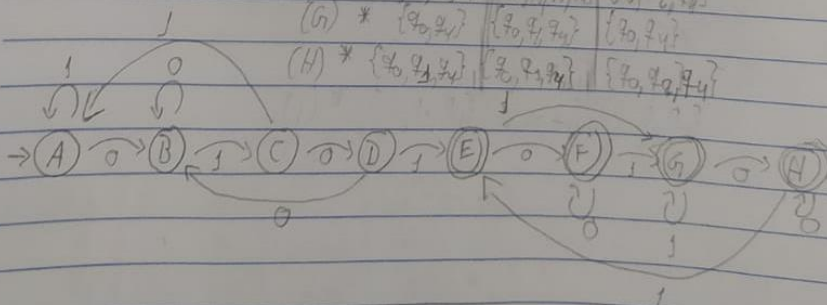 (G) * {q0,q4} {q0,q1,q4} {q0,q4}
(H) * {q0,q1,q4} {q0,q1,q4} {q0,q2,q4}
1
1 0 1
A 0 B 1 C 0 D 1 E 0 F 1 G 0 H
0 0 1 0
1